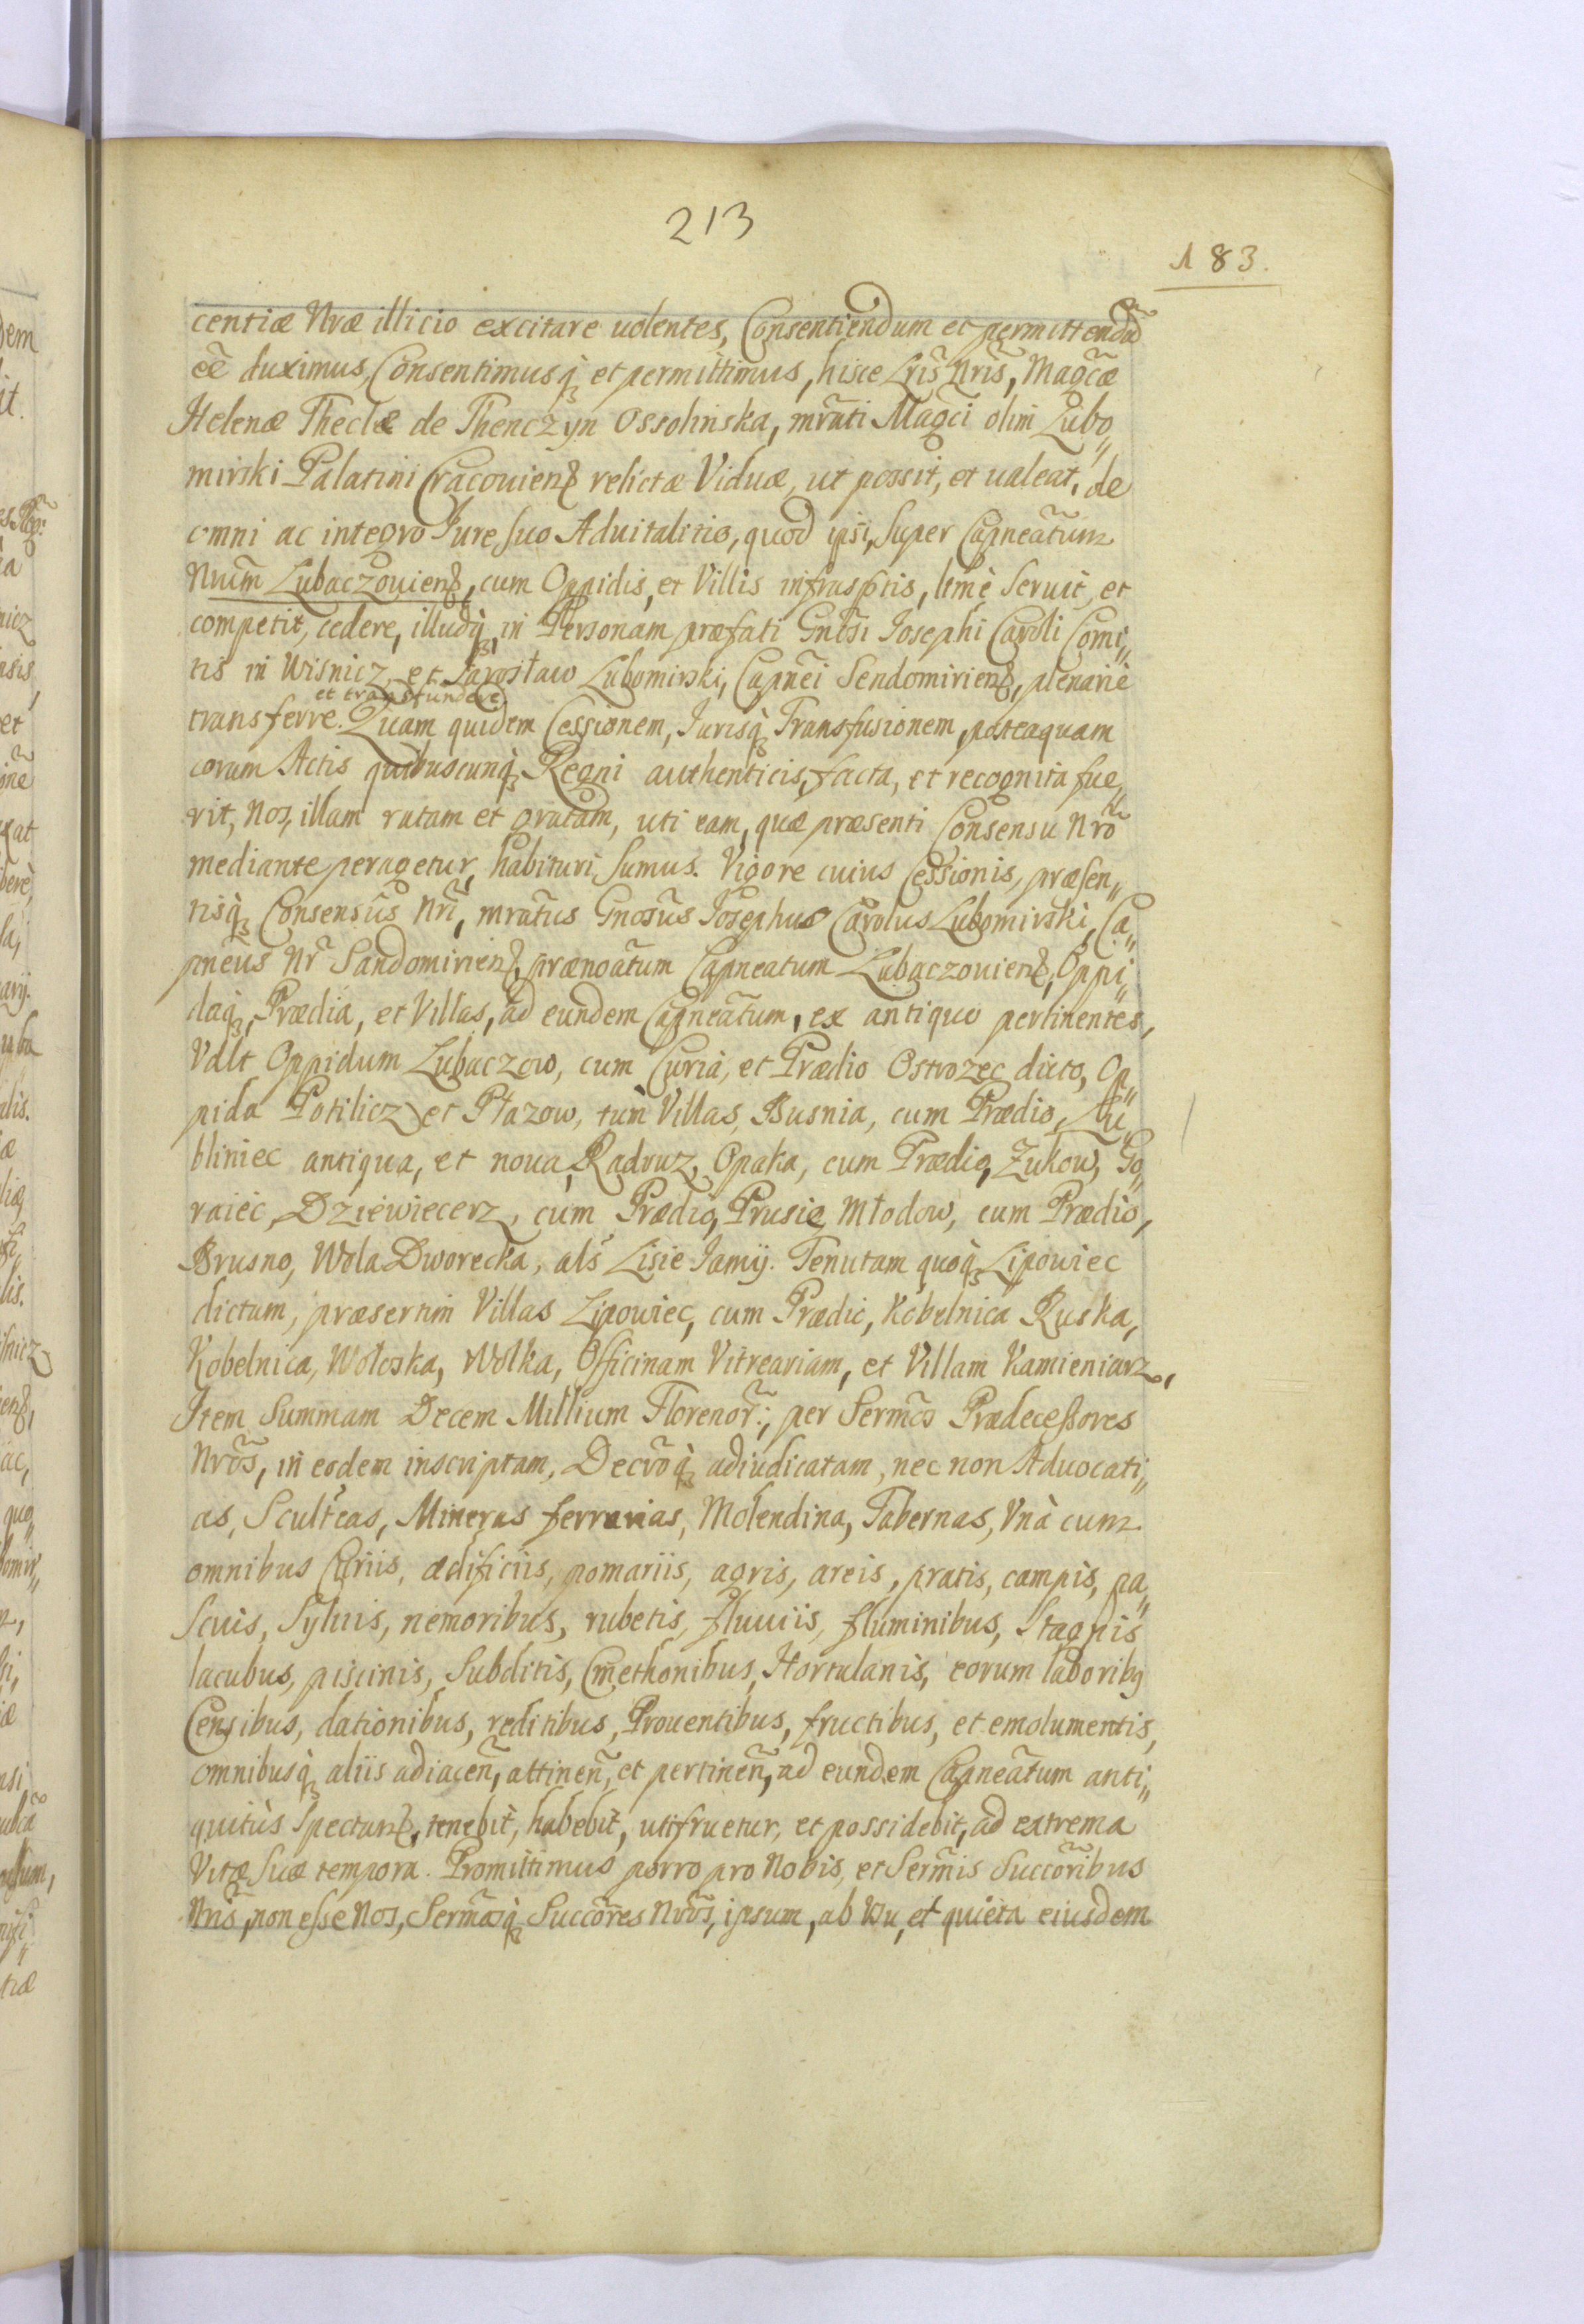 213
183.
centiæ Nræ illicio excitare uolentes, Consentiendum et permittendũ
eẽ duximus, Consentimusq; et permittimus, hisce Lris̃ Nris̃, Magc̃æ
Helenæ Theclæ de Thenczyn Ossolinska, mrati Magc̃i olim Lubo„
mirski Palatini Cracouien̄ relictæ Viduæ, ut possit, et ualeat, de
omni ac integro Jure suo Aduitalitio, quod ipsi, super Capneãtum
Nrum̃ Lubaczouien̄, cum Oppidis, et Villis infrasptis, ltmè Seruit, et
competit, cedere, illudq; in Personam præfati Gnrs̃i Josephi Caroli Comi„
tis in Wisnicz, et Jarosław Lubomirski, Capnẽi Sendomirien̄, plenariè
et transfundere
transferre. Quam quidem Cessionem, Jurisq; Transfusionem, posteaquam
corum Actis quibuscunq; Regni authenticis, facta, et recognita fue„
rit, Nos, illam ratam et gratam, uti eam, quæ præsenti Consensu Nrõ
mediante peragetur, habituri sumus. Vigore cuius Cessionis, præsen„
tisq; Consensũs Nri̇̃, mratus Gnosũs Josephus Carolus Lubomirski, Ca„
pnẽus Nr̃ Sandomirien̄, prænoãtum Capneatum Lubaczouien̄, Oppi„
daq; Prædia, et Villas, ad eundem Capneãtum, ex antiquo pertinentes,
Vdlt Oppidum Lubaczow, cum Curia, et Prædio Ostrozec dicto, Op„
pida Potilicz et Płazow, tum Villas, Busnia, cum Prædio, Lu„
bliniec antiqua, et noua, Radruz, Opaka, cum Prædio, Zukow, Go„
raiec, Dziewiecerz, cum Prædio, Prusie, Młodow, cum Prædio,
Brusno, Wola Dworecka, als̃ Lisie Jamÿ. Tenutam quoq; Lipowiec
dictum, præsertim Villas Lipowiec, cum Prædio, Kobelnica Ruska,
Kobelnica, Wołoska, Wolka, Officinam Vitreariam, et Villam Kamieniarz,
Item Summam Decem Millium Florenor̃:, per Sermc̃os Prædecessores
Nrõs, in eodem inscriptam, Decrõq; adiudicatam, nec non Aduocati„
as, Scultẽas, Mineras ferrarias, Molendina, Tabernas, Vnà cum
omnibus Curiis, ædificiis, pomariis, agris, areis, pratis, campis, pa„
scuis, Syluis, nemoribus, rubetis, fluuiis, fluminibus, Stagnis
lacubus, piscinis, Subditis, Cmethonibus, Hortulanis, eorum laboribq
Censibus, dationibus, reditibus, Prouentibus, fructibus, et emolumentis,
omnibusq; aliis adiaceñ, attineñ, et pertineñ, ad eundem Capneãtum anti„
quitùs Spectan̄, tenebit, habebit, utifruetur, et possidebit, ad extrema
Vitæ Suæ tempora. Promittimus porro pro Nobis, et Serm̃is Succõribus
Nris̃, non esse Nos, Serm̃osq; Succõres Nrõs, ipsum, ab Vsu, et quieta eiusdem